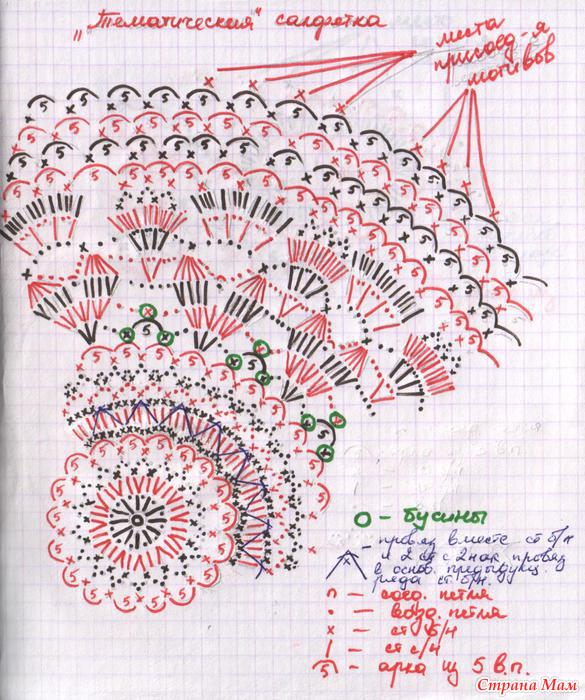 „Тематическая" салфетка
места
присоед-я
мотивов
О - бусины
- провяз вместе ст б/н
и 2 ст с 2 нак. провяз
в основ. предыдущ.
ряда ст. б/н.
∩ — соед. петля
• — возд. петля
x — ст б/н
| — ст с/н
5 — арка из 5 в.п.
Страна Мам